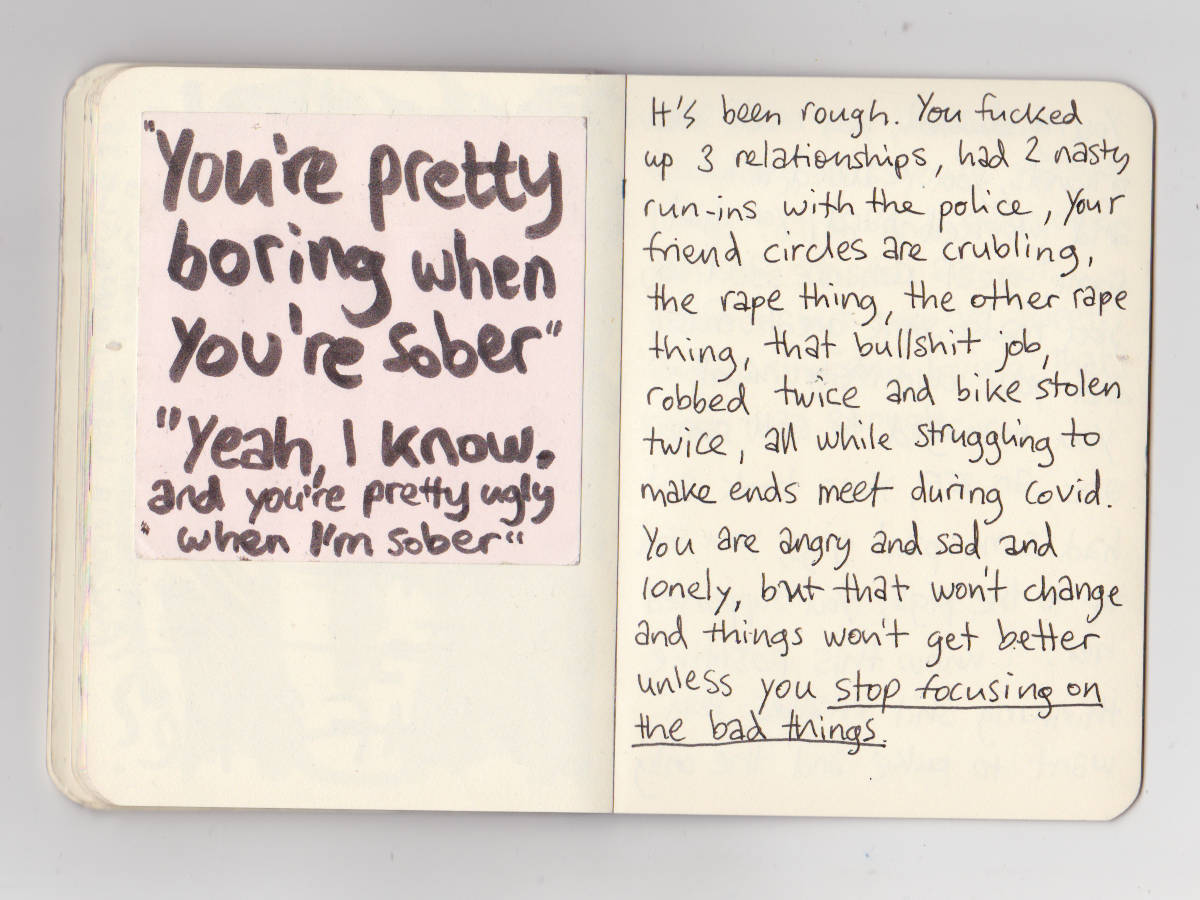 "You're pretty
boring when
you're sober"
"Yeah, I know.
and you're pretty ugly
when I'm sober"
It's been rough. You fucked
up 3 relationships, had 2 nasty
run-ins with the police, your
friend circles are crubling,
the rape thing, the other rape
thing, that bullshit job,
robbed twice and bike stolen
twice, all while struggling to
make ends meet during Covid.
You are angry and sad and
lonely, but that won't change
and things won't get better
unless you stop focusing on
the bad things.